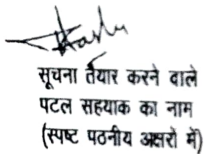 सूचना तैयार करने वाले
पटल सहयाक का नाम
(स्पष्ट पठनीय अक्षरों में)